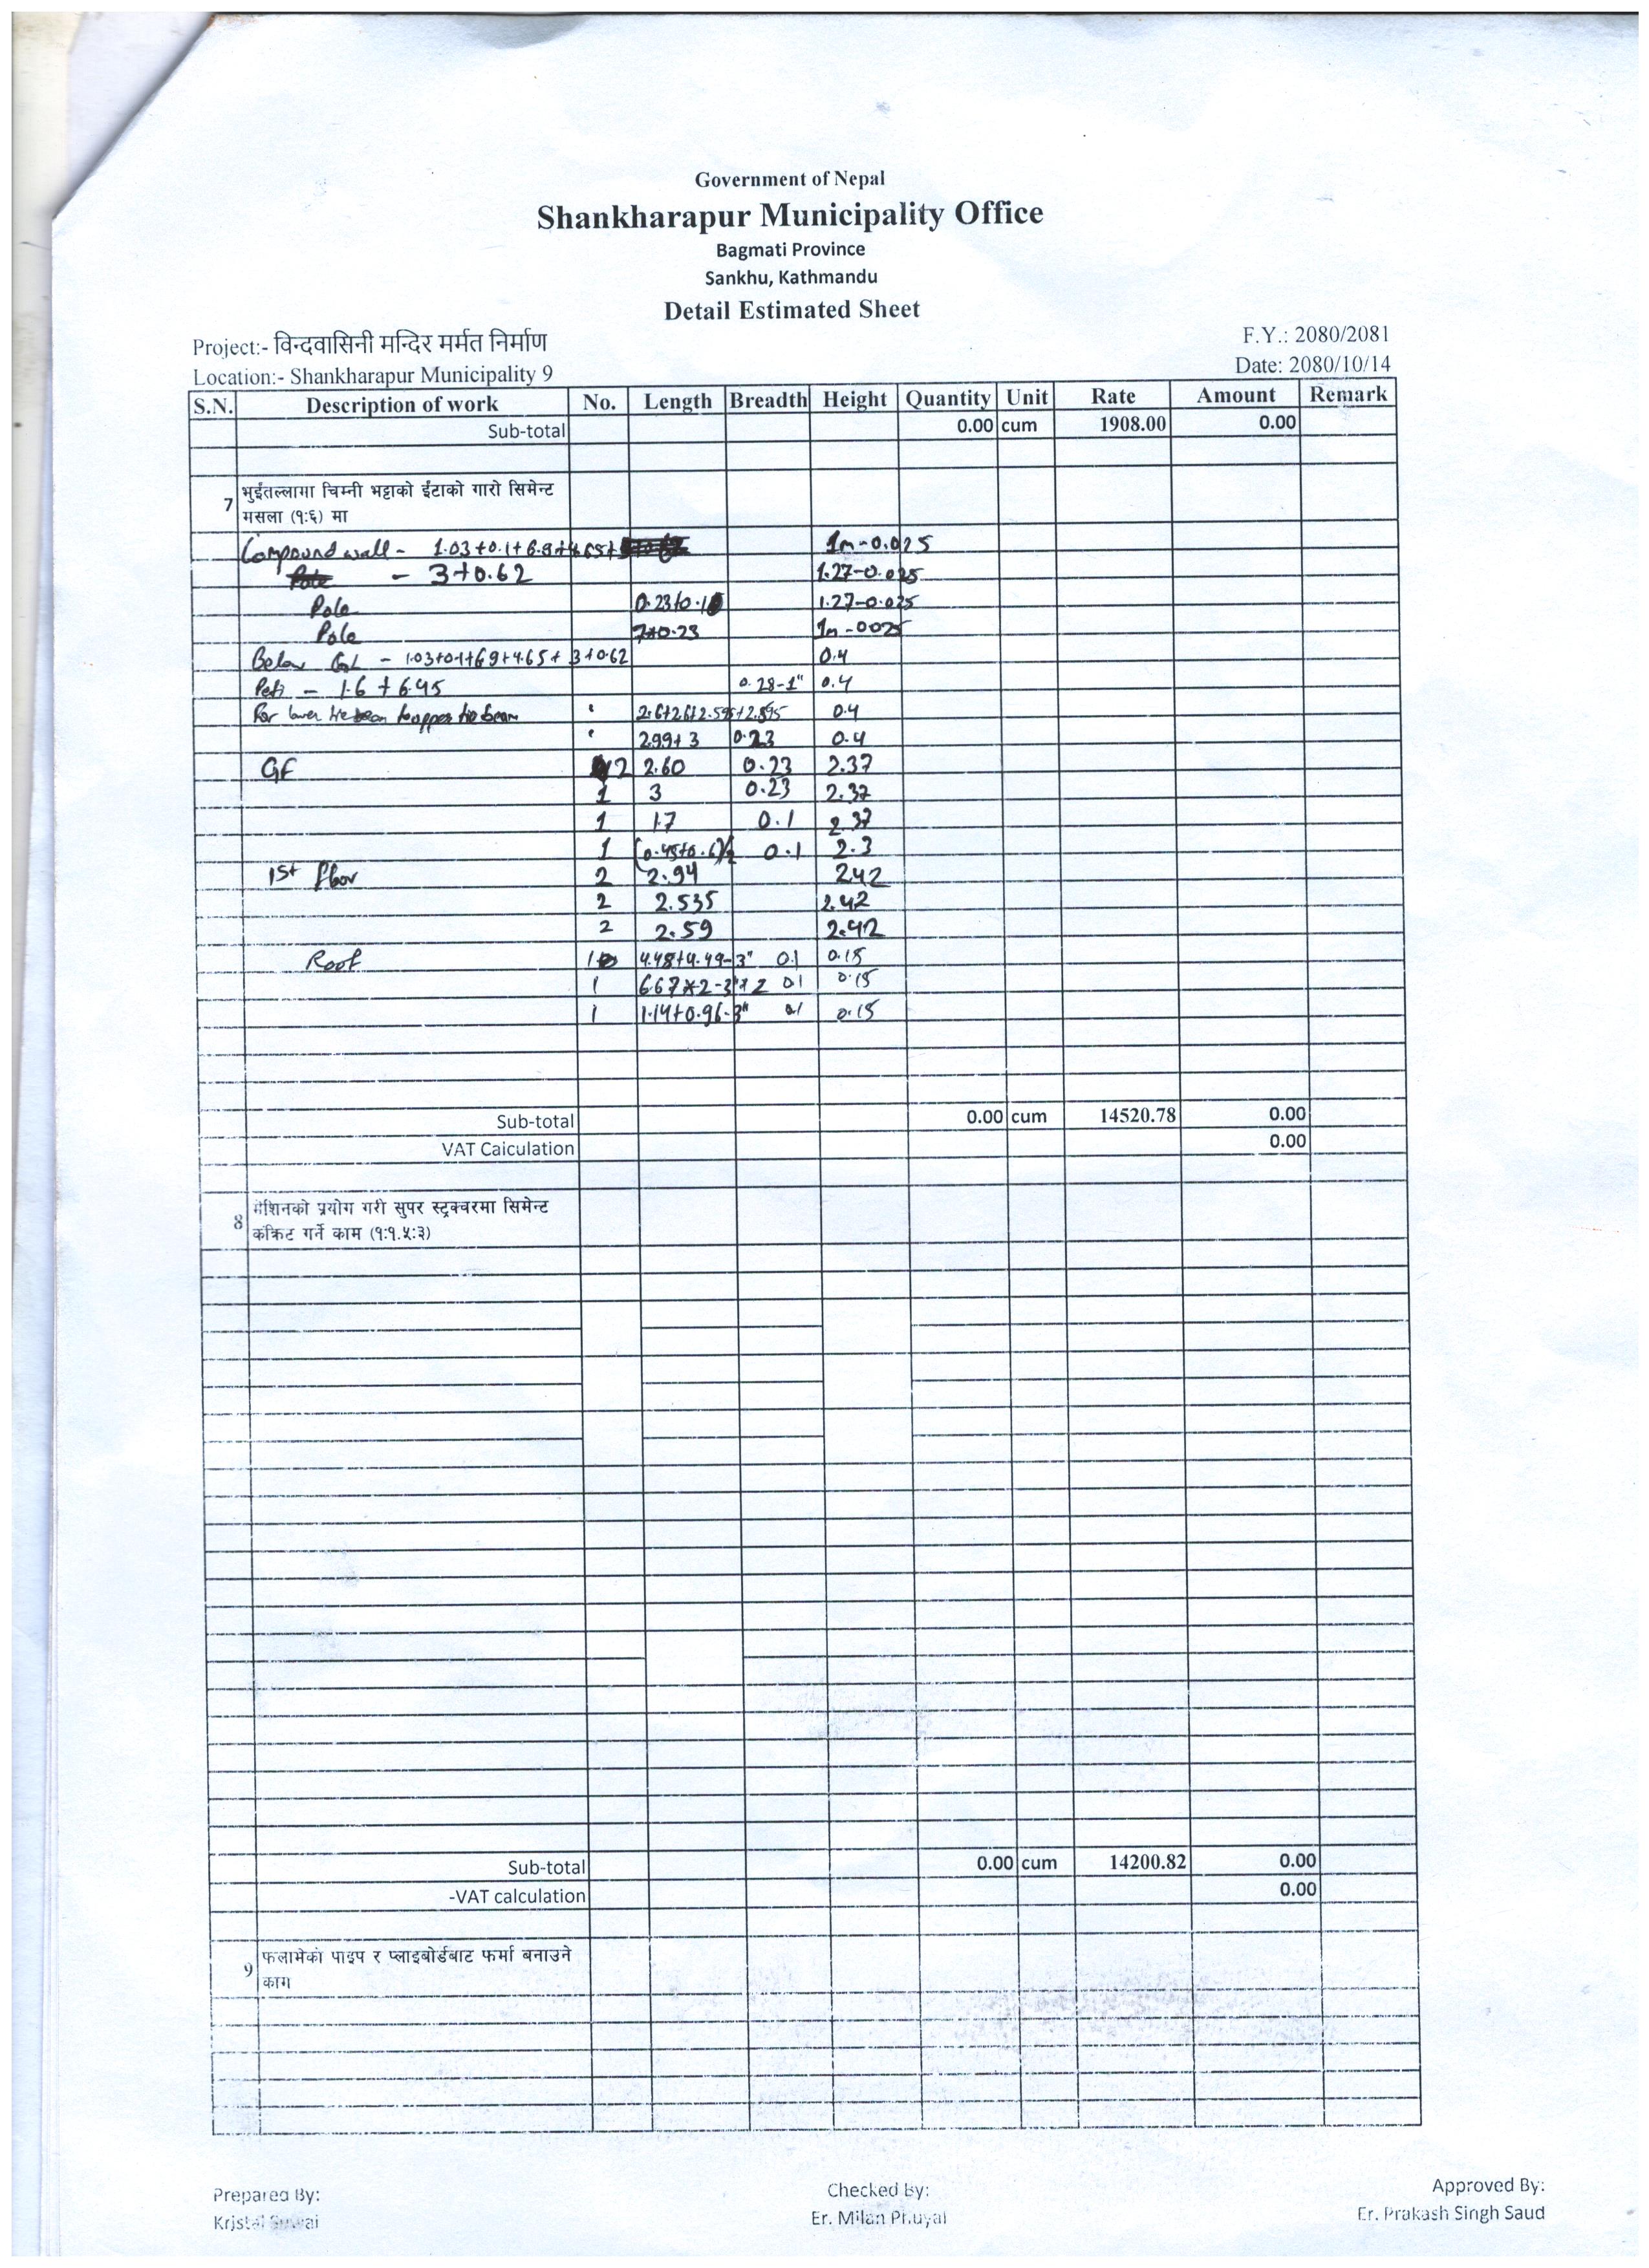 Government of Nepal
Shankharapur Municipality Office
Bagmati Province
Sankhu, Kathmandu
Detail Estimated Sheet
Project:- विन्दवासिनी मन्दिर मर्मत निर्माण F.Y.: 2080/2081
Location:- Shankharapur Municipality 9 Date: 2080/10/14
S.N. Description of work No. Length Breadth Height Quantity Unit Rate Amount Remark
Sub-total 0.00 cum 1908.00 0.00
7 भुईंतल्लामा चिम्नी भट्टाको ईंटाको गारो सिमेन्ट
मसला (१:६) मा
Compound wall - 1.03+0.1+6.9+4.65+ 1m-0.025
- 3+0.62 1.27-0.025
Pole 0.23+0.1 1.27-0.025
Pole 7*0.23 1m-0.025
Below GL - 1.03+0.1+6.9+4.65+ 3+0.62 0.4
Peti - 1.6+6.45 0.28-1" 0.4
For lower tie beam to upper tie beam 2.6+2.6+2.595+2.895 0.4
2.99+3 0.23 0.4
GF 2 2.60 0.23 2.37
1 3 0.23 2.37
1 1.7 0.1 2.37
1 (0.45+0.6)/2 0.1 2.3
1st floor 2 2.94 2.42
2 2.535 2.42
2 2.59 2.42
Roof 1 4.48+4.49-3" 0.1 0.15
1 6.67*2-3"*2 0.1 0.15
1 1.14+0.96-3" 0.1 0.15
Sub-total 0.00 cum 14520.78 0.00
VAT Caiculation 0.00
8 मेशिनको प्रयोग गरी सुपर स्ट्रक्चरमा सिमेन्ट
कंक्रिट गर्ने काम (१:१.५:३)
Sub-total 0.00 cum 14200.82 0.00
-VAT calculation 0.00
9 फलामेको पाइप र प्लाइबोर्डबाट फर्मा बनाउने
काम
Prepared By: Checked By: Approved By:
Er. Milan Phuyal Er. Prakash Singh Saud